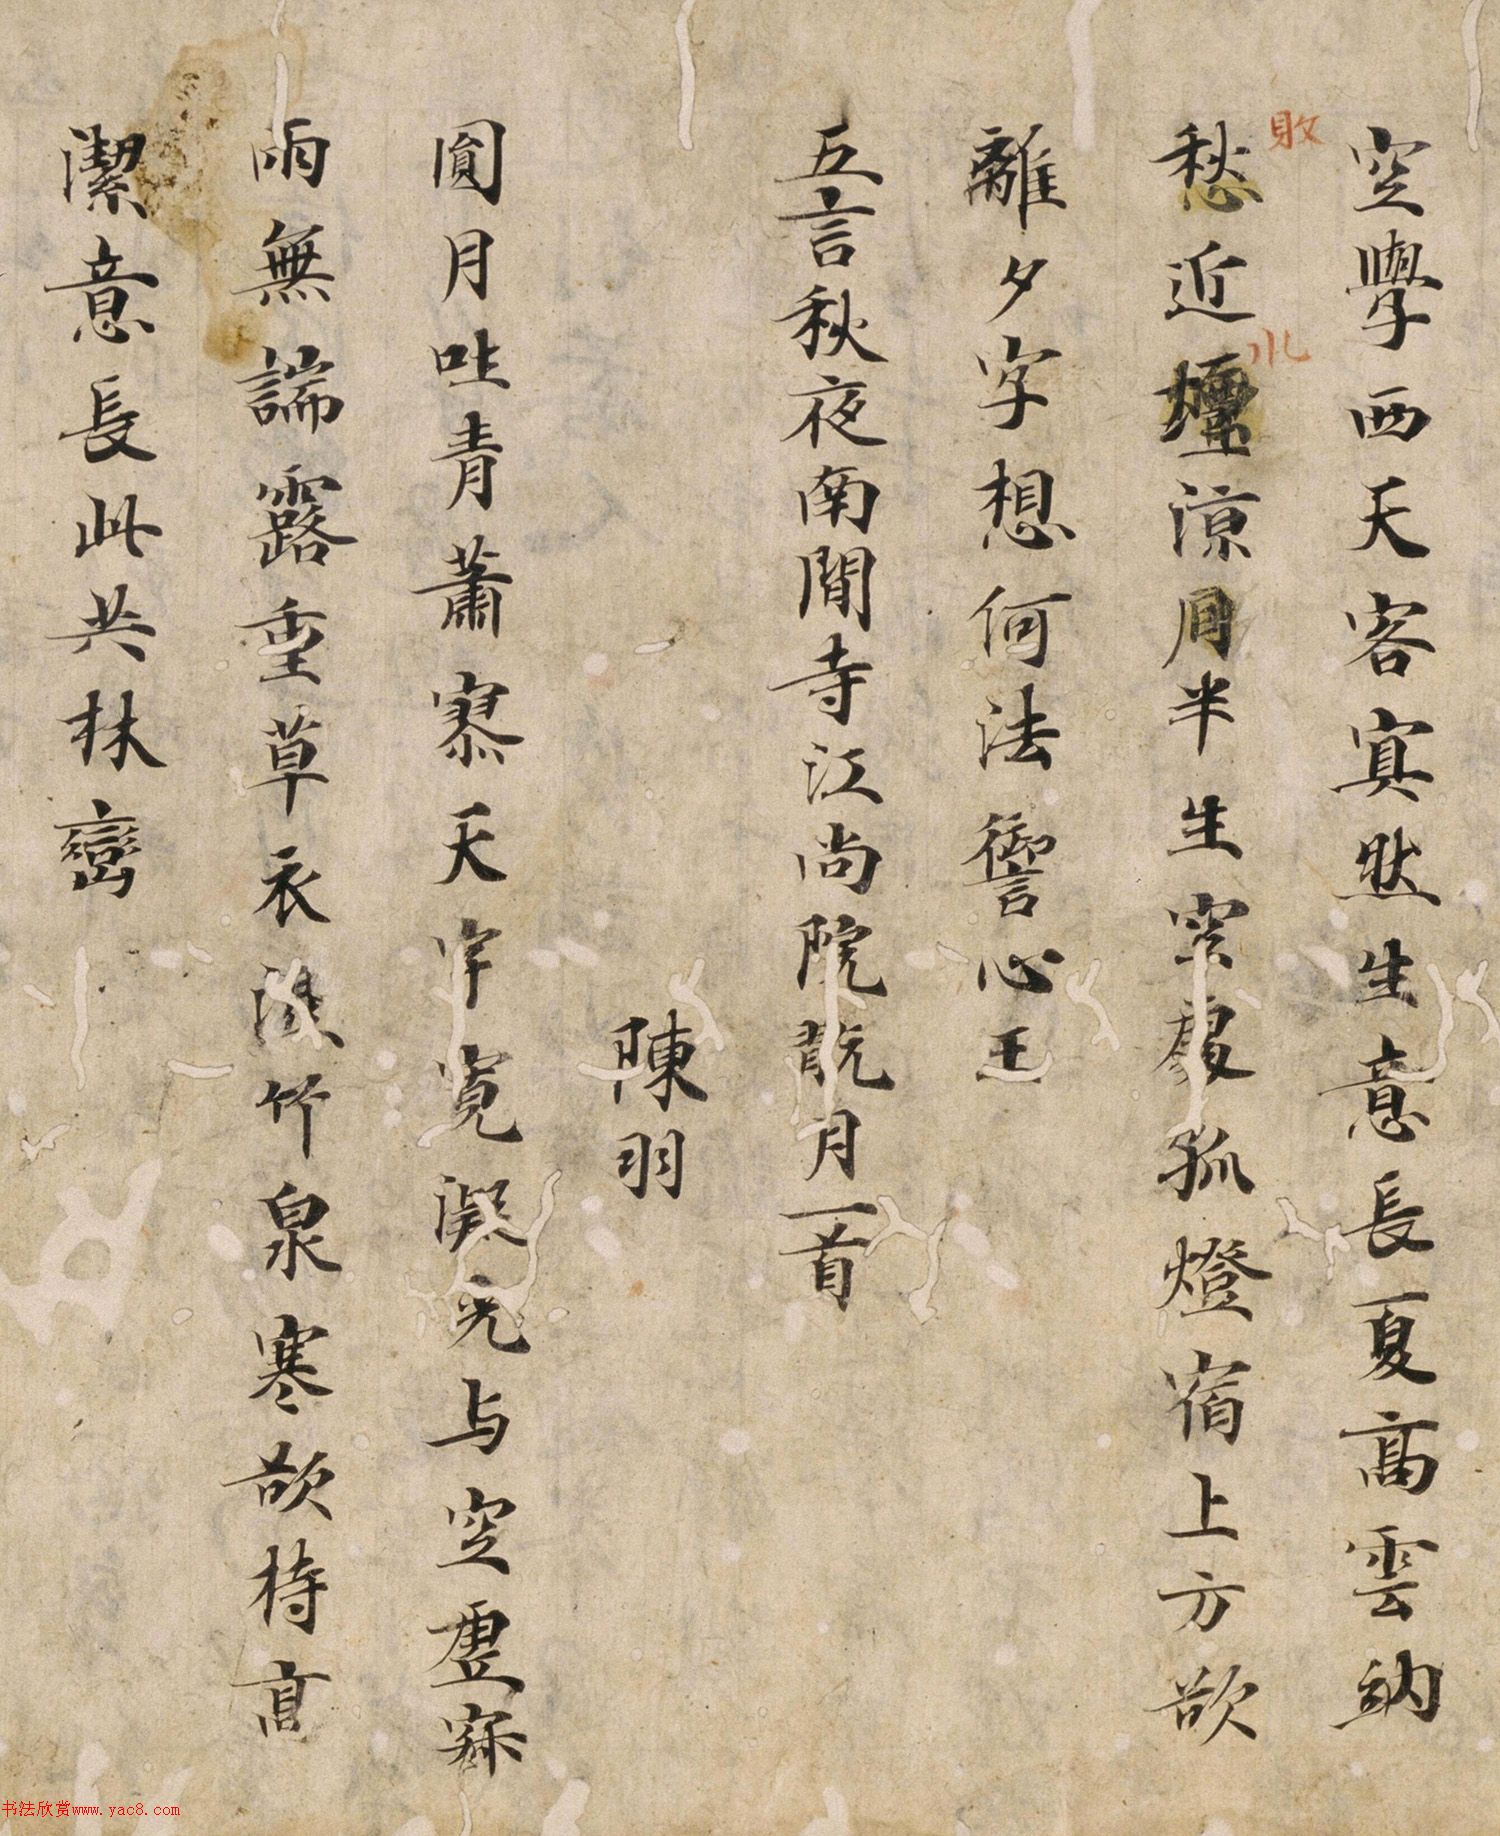 空學西天客寘然生意長夏高雲納
敗
愁近壇涼月半生空處孤燈宿上方欲
水
離夕字想何法禦心王
五言秋夜南閒寺江尚院翫月一首
陳羽
圓月吐青蕭寥天宇寛凝光与空虛寐
雨無端露重草衣淺竹泉寒欲持高
潔意長此共林巒
书法欣赏www.yac8.com